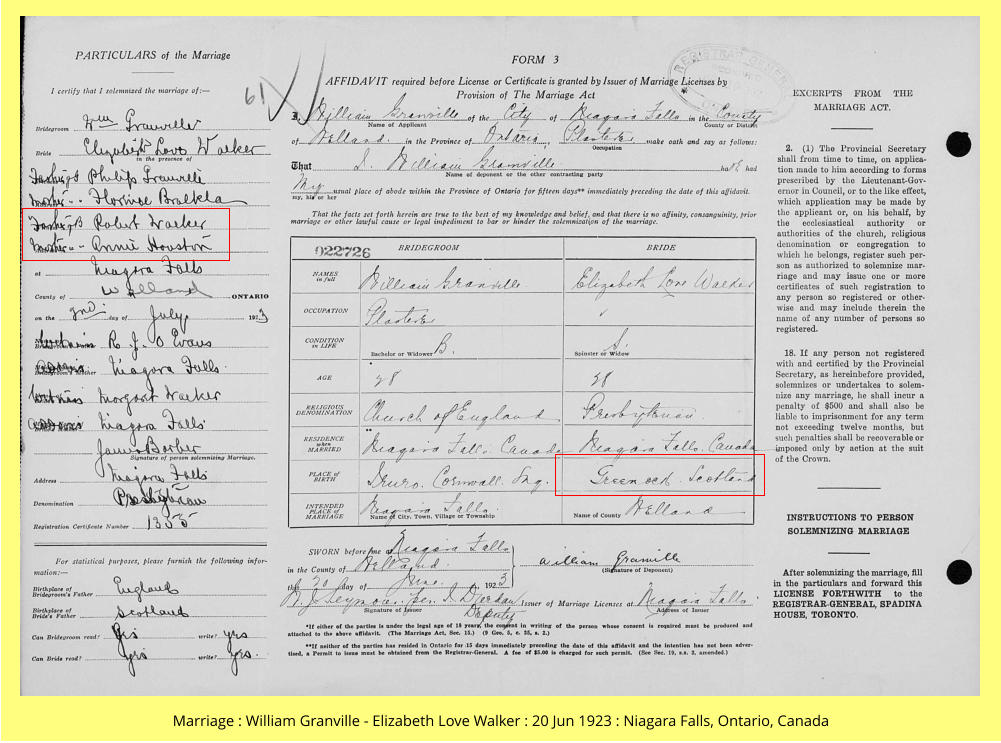 PARTICULARS of the Marriage
I certify that I solemnized the marriage of:—
Bridegroom Wm Granville
Bride Elizabeth Love Walker
in the presence of
Philip Granville
Florince
Robert Walker
Annie Houston
at Niagara Falls
County of Welland ONTARIO
on the 2nd day of July 1923
R. J. O Evans
Niagara Falls
witness Margaret Walker
address Niagara Falls
James Barber
Signature of person solemnizing Marriage.
Address Niagara Falls
Denomination Presbyterian
Registration Certificate Number 1355
For statistical purposes, please furnish the following information:—
Birthplace of Bridegroom's Father England
Birthplace of Bride's Father Scotland
Can Bridegroom read? Yes write? yes
Can Bride read? yes write? Yes.
61
FORM 3
AFFIDAVIT required before License or Certificate is granted by Issuer of Marriage Licenses by
Provision of The Marriage Act
REGISTRAR GENERAL
I, William Granville of the City of Niagara Falls in the County
Name of Applicant County or District
of Welland in the Province of Ontario, Plasterer make oath and say as follows:
Occupation
That I, William Granville had
Name of deponent or the other contracting party
My usual place of abode within the Province of Ontario for fifteen days** immediately preceding the date of this affidavit.
my, his or her
That the facts set forth herein are true to the best of my knowledge and belief, and that there is no affinity, consanguinity, prior
marriage or other lawful cause or legal impediment to bar or hinder the solemnization of the marriage.
022726 BRIDEGROOM BRIDE
NAMES in full William Granville Elizabeth Love Walker
OCCUPATION Plasterer
CONDITION in LIFE Bachelor or Widower B. Spinster or Widow S.
AGE 28 28
RELIGIOUS DENOMINATION Church of England Presbyterian
RESIDENCE when MARRIED Niagara Falls. Canada Niagara Falls. Canada
PLACE OF BIRTH Truro. Cornwall. Eng. Greenock Scotland
INTENDED PLACE OF MARRIAGE Niagara Falls. Welland
Name of City, Town, Village or Township Name of County
SWORN before me Niagara Falls
in the County of Welland william Granville
(Signature of Deponent)
this 20 day of June. 1923
Issuer of Marriage Licenses at Niagara Falls
Signature of Issuer Deputy Address of Issuer
*If either of the parties is under the legal age of 18 years, the consent in writing of the person whose consent is required must be produced and
attached to the above affidavit. (The Marriage Act, Sec. 15.) (9 Geo. 5, c. 35, s. 2.)
**If neither of the parties has resided in Ontario for 15 days immediately preceding the date of this affidavit and the intention has not been adver-
tised, a Permit to issue must be obtained from the Registrar-General. A fee of $5.00 is charged for such permit. (See Sec. 19, s.s. 3, amended.)
EXCERPTS FROM THE
MARRIAGE ACT.
2. (1) The Provincial Secretary
shall from time to time, on applica-
tion made to him according to forms
prescribed by the Lieutenant-Gov-
ernor in Council, or to the like effect,
which application may be made by
the applicant or, on his behalf, by
the ecclesiastical authority or
authorities of the church, religious
denomination or congregation to
which he belongs, register such per-
son as authorized to solemnize mar-
riage and may issue one or more
certificates of such registration to
any person so registered or other-
wise and may include therein the
name of any number of persons so
registered.
18. If any person not registered
with and certified by the Provincial
Secretary, as hereinbefore provided,
solemnizes or undertakes to solem-
nize any marriage, he shall incur a
penalty of $500 and shall also be
liable to imprisonment for any term
not exceeding twelve months, but
such penalties shall be recoverable or
imposed only by action at the suit
of the Crown.
INSTRUCTIONS TO PERSON
SOLEMNIZING MARRIAGE
After solemnizing the marriage, fill
in the particulars and forward this
LICENSE FORTHWITH to the
REGISTRAR-GENERAL, SPADINA
HOUSE, TORONTO.
Marriage : William Granville - Elizabeth Love Walker : 20 Jun 1923 : Niagara Falls, Ontario, Canada